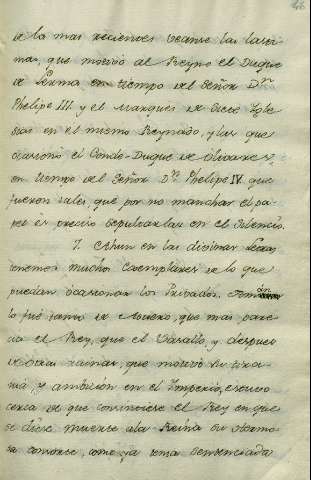 de la mas recientes veanse las lasti-
mas, que movió al Reyno el Duque
de Lerma en tiempo del Señor Dn
Phelipe III y el Marques de Siete Igle
sias en el mismo Reynado, y las que
ocasionó el Conde-Duque de Olivares,
en tiempo del Señor Dn Phelipe IV que
fueron tales que por no manchar el pa-
pel es preciso sepultarlas en el silencio.
7. Aun en las divinas Letras
tenemos muchos exemplares de lo que
pueden ocasionar los Privados. Amán
lo fué tanto de Asuero, que mas pare
cia el Rey, que el Vasallo, y despues
de varias que movió su tira-
nia y ambicion en el Imperio, estuvo
cerca de que consintiese el Rey en que
se diese muerte a la Reina su hermo
sa consorte, como ya tenia sentenciada